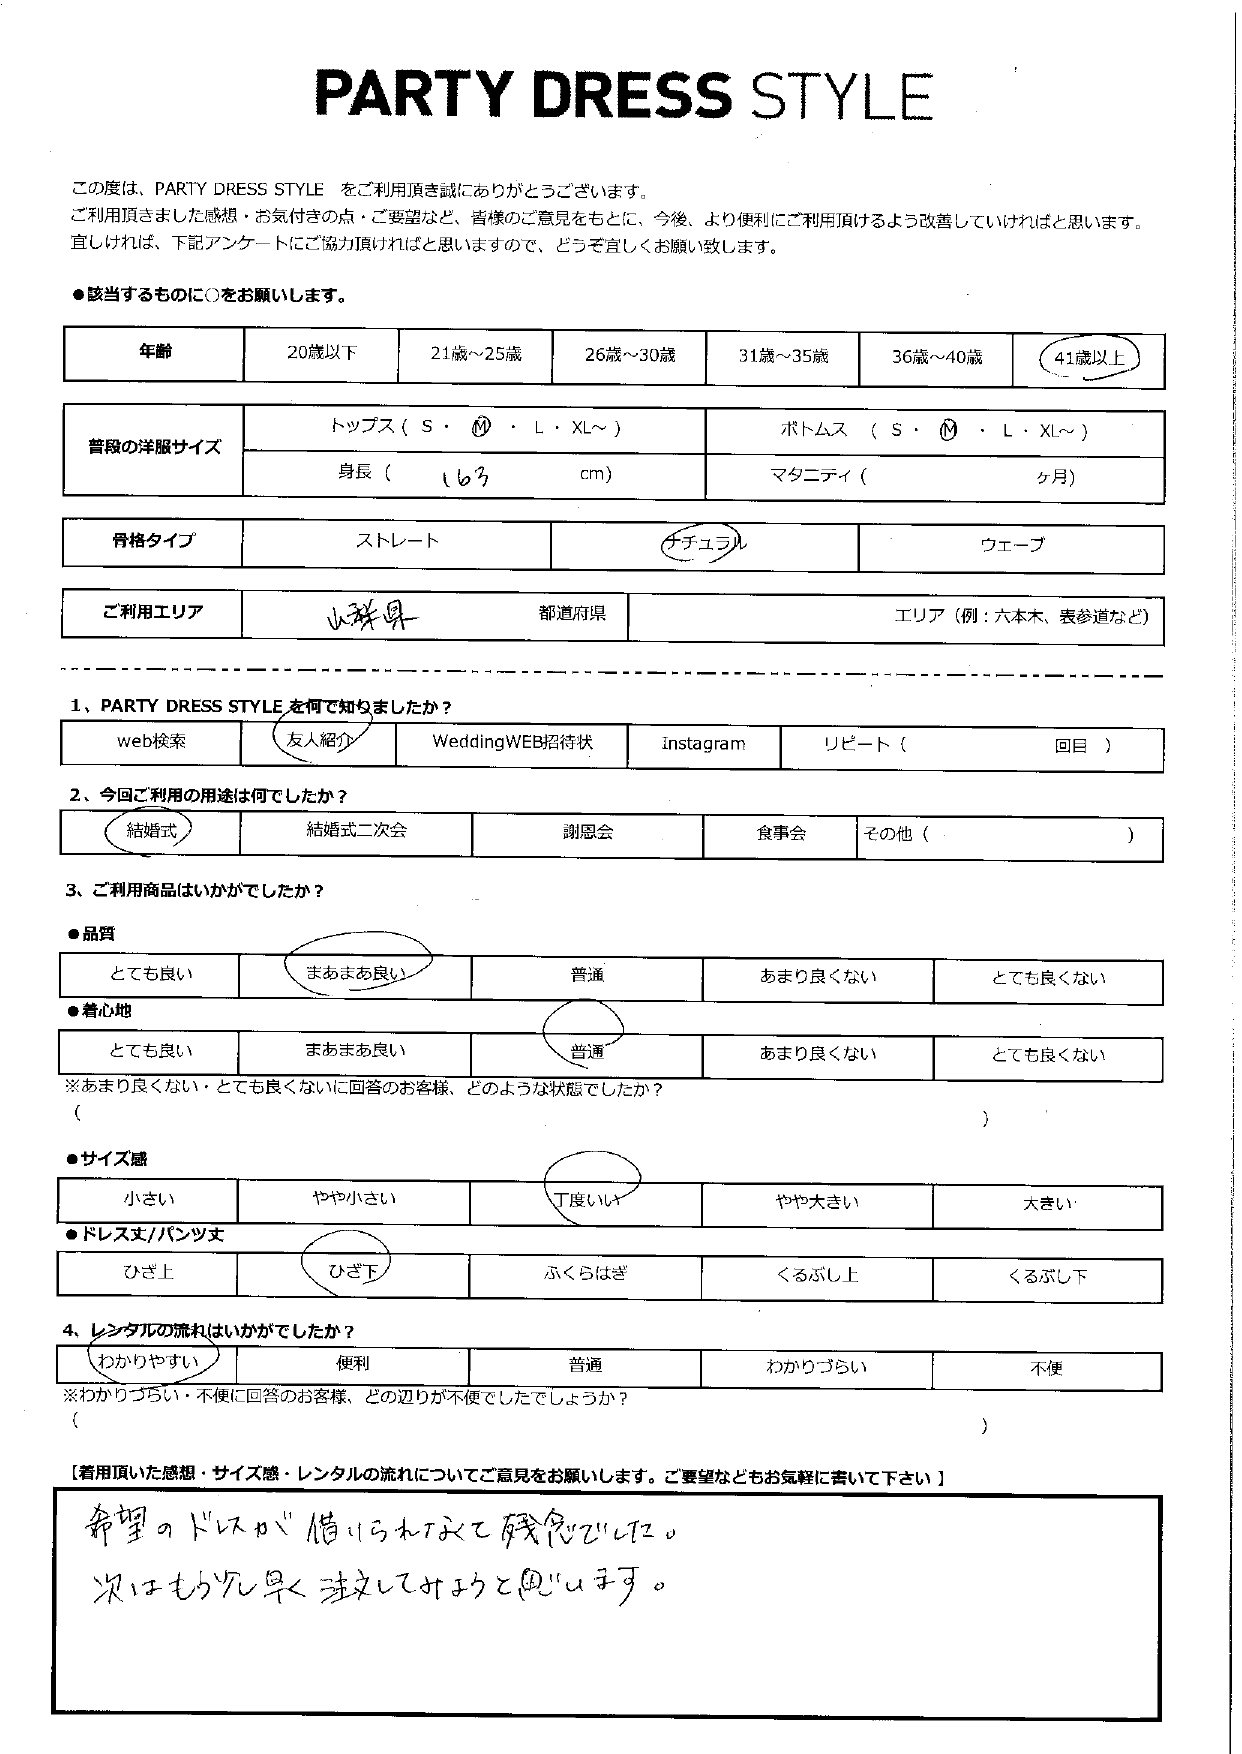 PARTY DRESS STYLE
この度は、PARTY DRESS STYLE をご利用頂き誠にありがとうございます。
ご利用頂きました感想・お気付きの点・ご要望など、皆様のご意見をもとに、今後、より便利にご利用頂けるよう改善していければと思います。
宜しければ、下記アンケートにご協力頂ければと思いますので、どうぞ宜しくお願い致します。
●該当するものに○をお願いします。
年齢 20歳以下 21歳～25歳 26歳～30歳 31歳～35歳 36歳～40歳 41歳以上
普段の洋服サイズ トップス ( S ・ M ・ L ・ XL～ ) ボトムス ( S ・ M ・ L ・ XL～ )
身長 ( 163 cm) マタニティ ( ヶ月)
骨格タイプ ストレート ナチュラル ウェーブ
ご利用エリア 山梨県 都道府県 エリア（例：六本木、表参道など）
1、PARTY DRESS STYLE を何で知りましたか？
web検索 友人紹介 WeddingWEB招待状 Instagram リピート ( 回目 )
2、今回ご利用の用途は何でしたか？
結婚式 結婚式二次会 謝恩会 食事会 その他 ( )
3、ご利用商品はいかがでしたか？
●品質
とても良い まあまあ良い 普通 あまり良くない とても良くない
●着心地
とても良い まあまあ良い 普通 あまり良くない とても良くない
※あまり良くない・とても良くないに回答のお客様、どのような状態でしたか？
( )
●サイズ感
小さい やや小さい 丁度いい やや大きい 大きい
●ドレス丈/パンツ丈
ひざ上 ひざ下 ふくらはぎ くるぶし上 くるぶし下
4、レンタルの流れはいかがでしたか？
わかりやすい 便利 普通 わかりづらい 不便
※わかりづらい・不便に回答のお客様、どの辺りが不便でしたでしょうか？
( )
【着用頂いた感想・サイズ感・レンタルの流れについてご意見をお願いします。ご要望などもお気軽に書いて下さい 】
希望のドレスが借りられなくて残念でした。
次はもう少し早く注文してみようと思います。